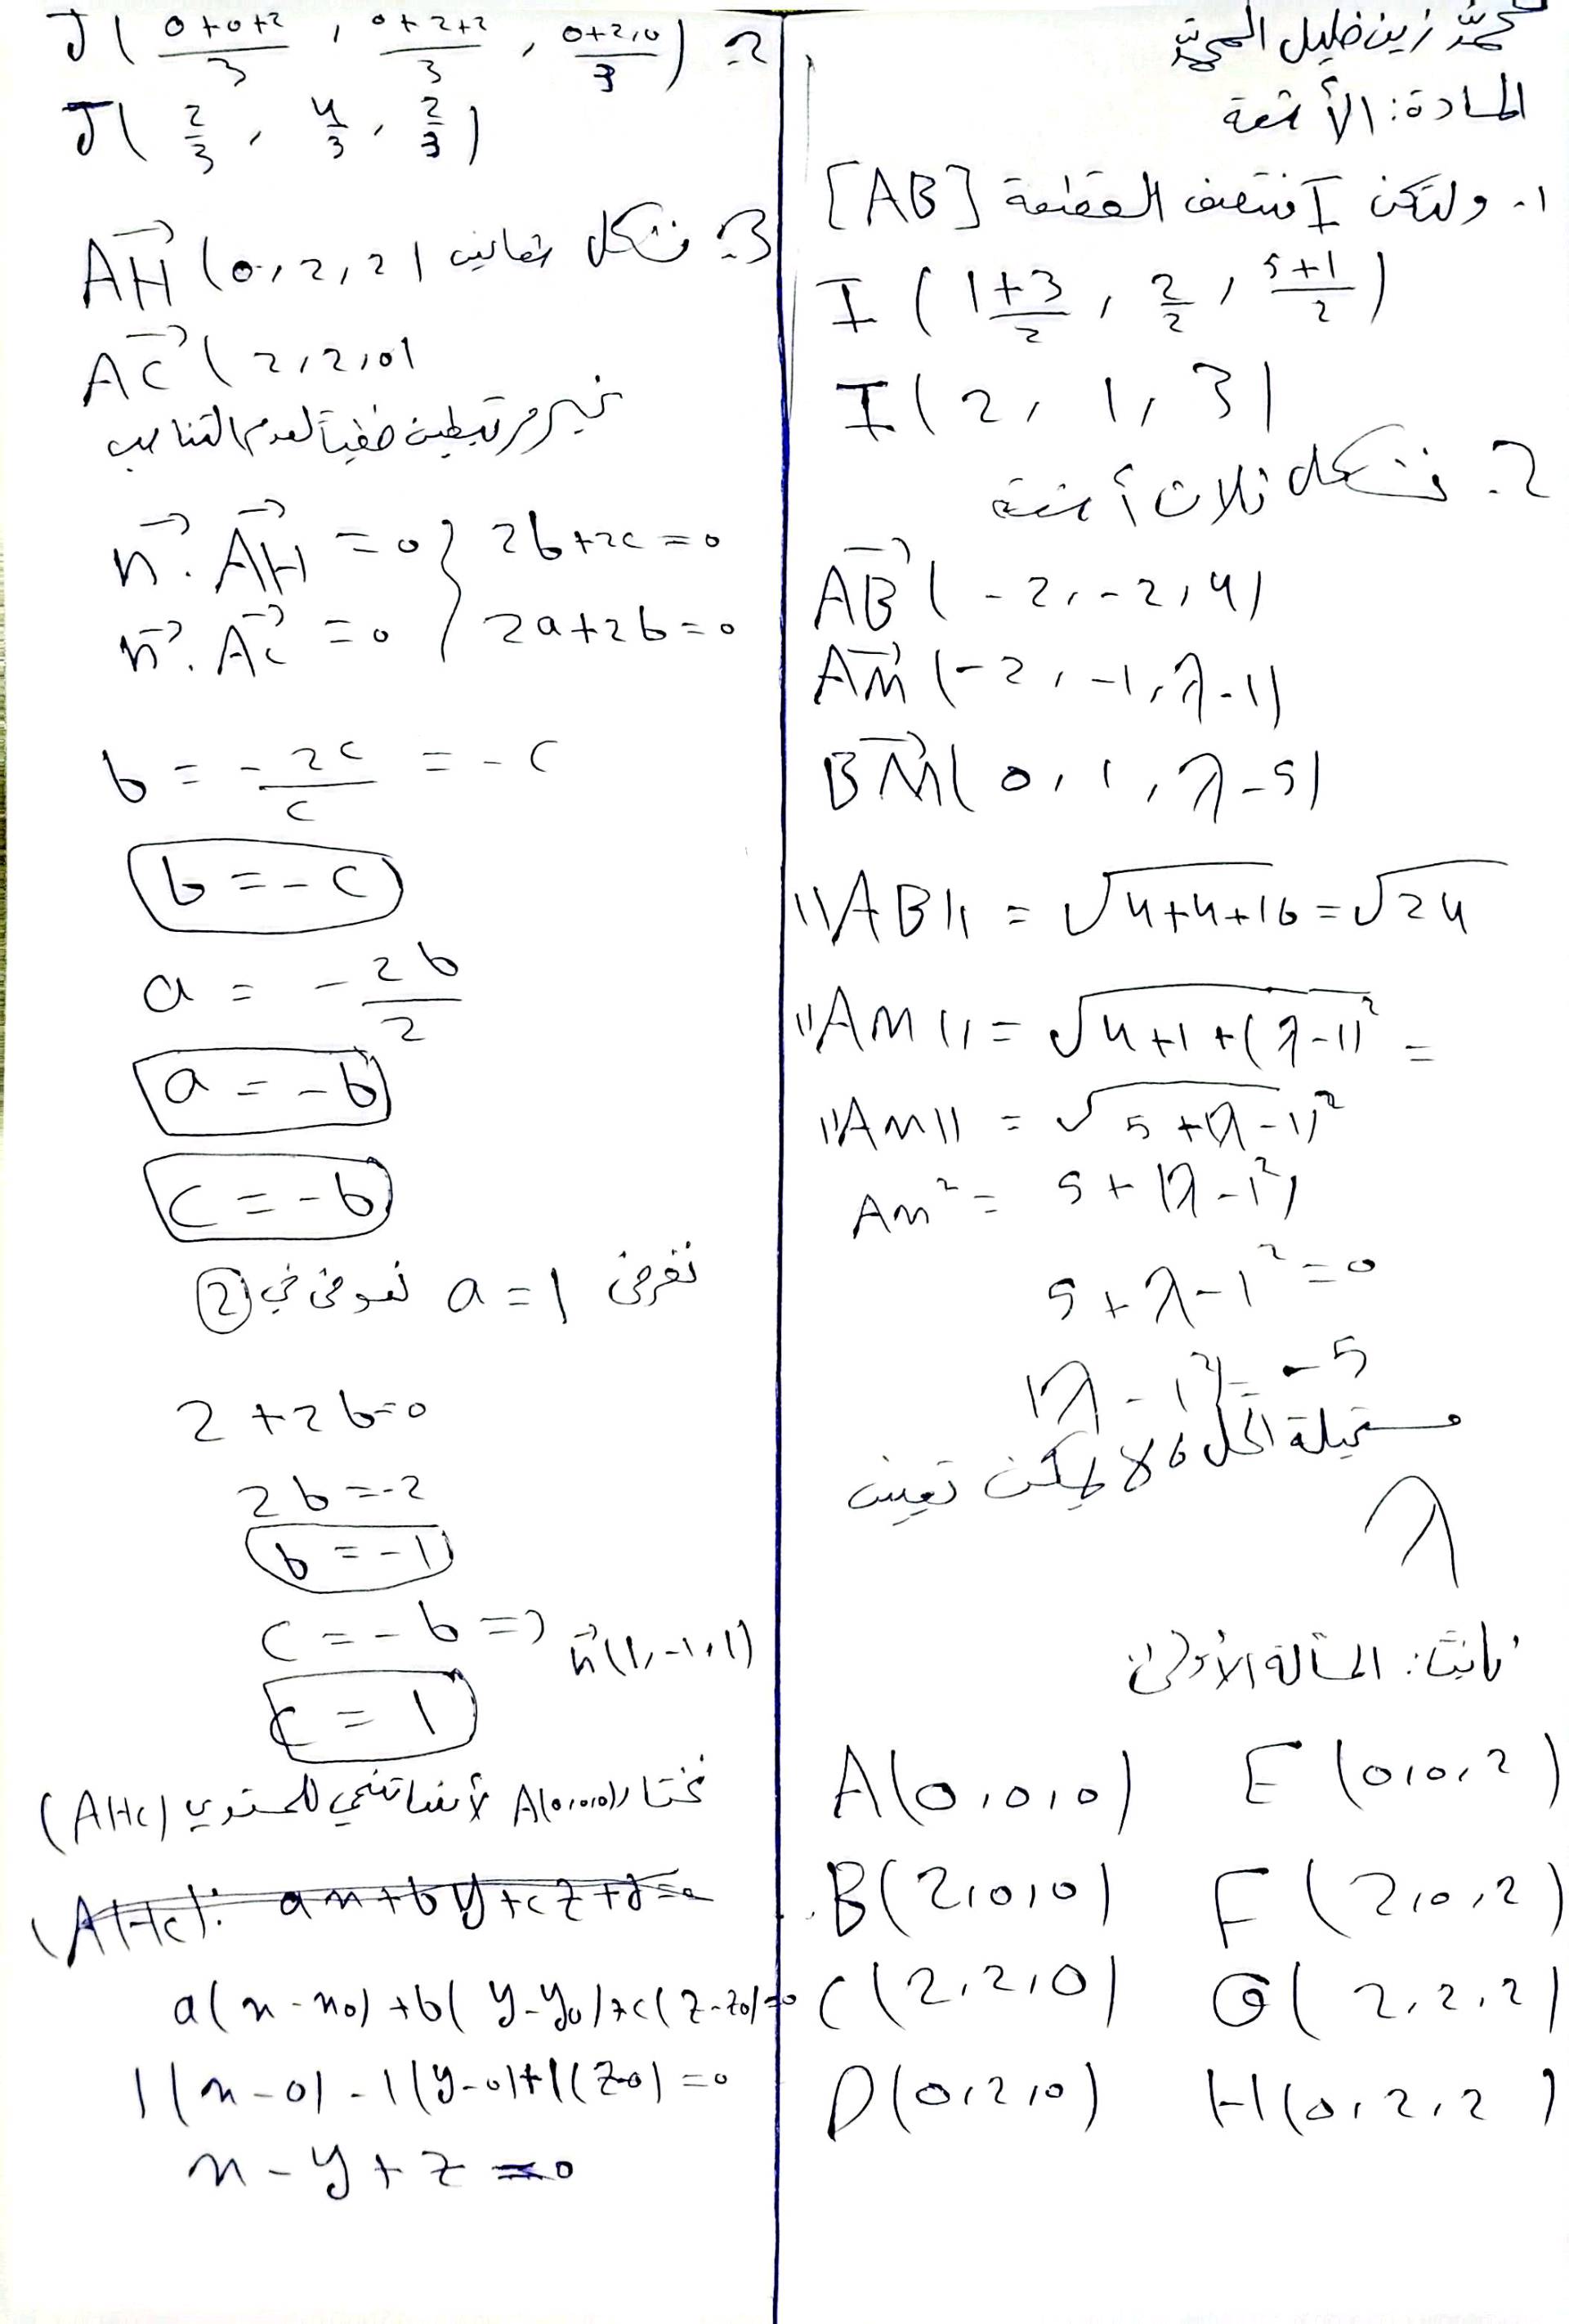 محمد زين خليل المحمد
المادة: الأشعة
1. ولتكن I منتصف القطعة [AB]
I ( 1+3/2 , 2/2 , 5+1/2 )
I ( 2, 1, 3 )
2. نشكل ثلاث أشعة
AB→ ( -2, -2, 4 )
AM→ ( -2, -1, λ-1 )
BM→ ( 0, 1, λ-5 )
||AB|| = √4+4+16 = √24
||AM|| = √4+1+(λ-1)² =
||AM|| = √5+(λ-1)²
AM² = 5+(λ-1²)
5+λ-1² = 0
(λ-1)² = -5
مستحيلة الحل فلا يمكن تعيين
λ
ثانياً: المسألة الأولى:
A(0,0,0) E(0,0,2)
B(2,0,0) F(2,0,2)
C(2,2,0) G(2,2,2)
D(0,2,0) H(0,2,2)
2. J ( 0+0+2/3 , 0+2+2/3 , 0+2,0/3 )
J ( 2/3 , 4/3 , 2/3 )
3. نشكل شعاعين AH→ (0,2,2)
AC→ (2,2,0)
غير مرتبطين خطياً لعدم التناسب
n→ . AH→ = 0 } 2b+2c=0
n→ . AC→ = 0 } 2a+2b=0
b = - 2c/c = -c
b = -c
a = - 2b/2
a = -b
c = -b
نفرض a = 1 نعوض في ②
2+2b=0
2b=-2
b = -1
c = -b => n→(1,-1,1)
c = 1
نختار A(0,0,0) لأنها تنتمي للمستوي (AHC)
(AHC): ax+by+cz+d=0
a(x-x0)+b(y-y0)+c(z-z0)=0
1(x-0)-1(y-0)+1(z-0)=0
x-y+z=0